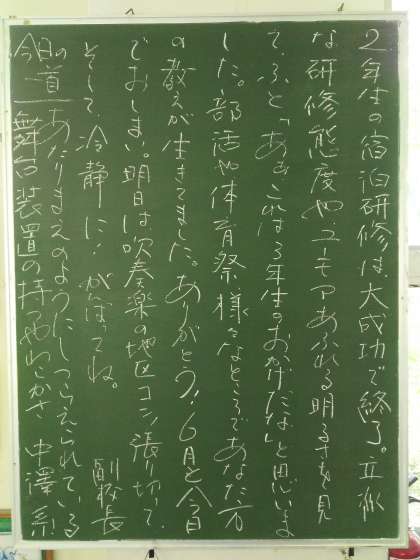 2年生の宿泊研修は、大成功で終了。立派
な研修態度や、ユーモアあふれる明るさを見
て、ふと「あぁこれは3年生のおかげだな」と思いま
した。部活や体育祭、様々なところであなた方
の教えが生きてました。ありがとう!6月も今日
でおしまい。明日は吹奏楽の地区コン、張り切って、
そして、冷静に!がんばってね。 副校長
今日の道 あたりまえのようにしつらえられている
舞台装置の持つやわらかさ 中澤系